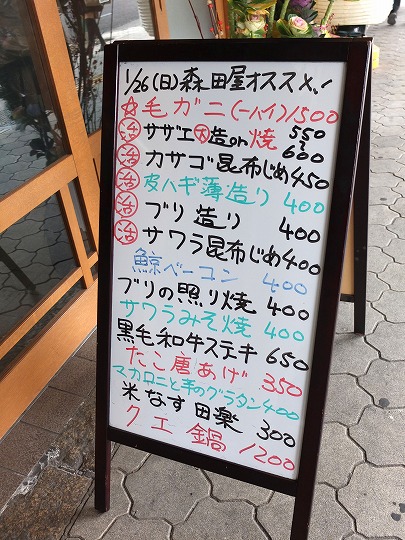 1/26(日)森田屋オススメ!
☆毛ガニ(一ハイ)1500
活サザエ大造or焼 550～600
活カサゴ昆布じめ450
活皮ハギ薄造り400
活ブリ造り400
活サワラ昆布じめ400
鯨ベーコン400
ブリの照り焼400
サワラみそ焼400
黒毛和牛ステキ650
たこ唐あげ350
マカロニと芋のグラタン400
米なす田楽300
クエ鍋1200